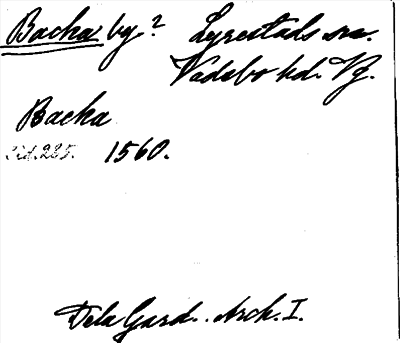 Backa by? Lyrestads sn.
Vadsbo hd. Vg.
Backa
sid. 285. 1560.
Dela Gard. Arch. I.